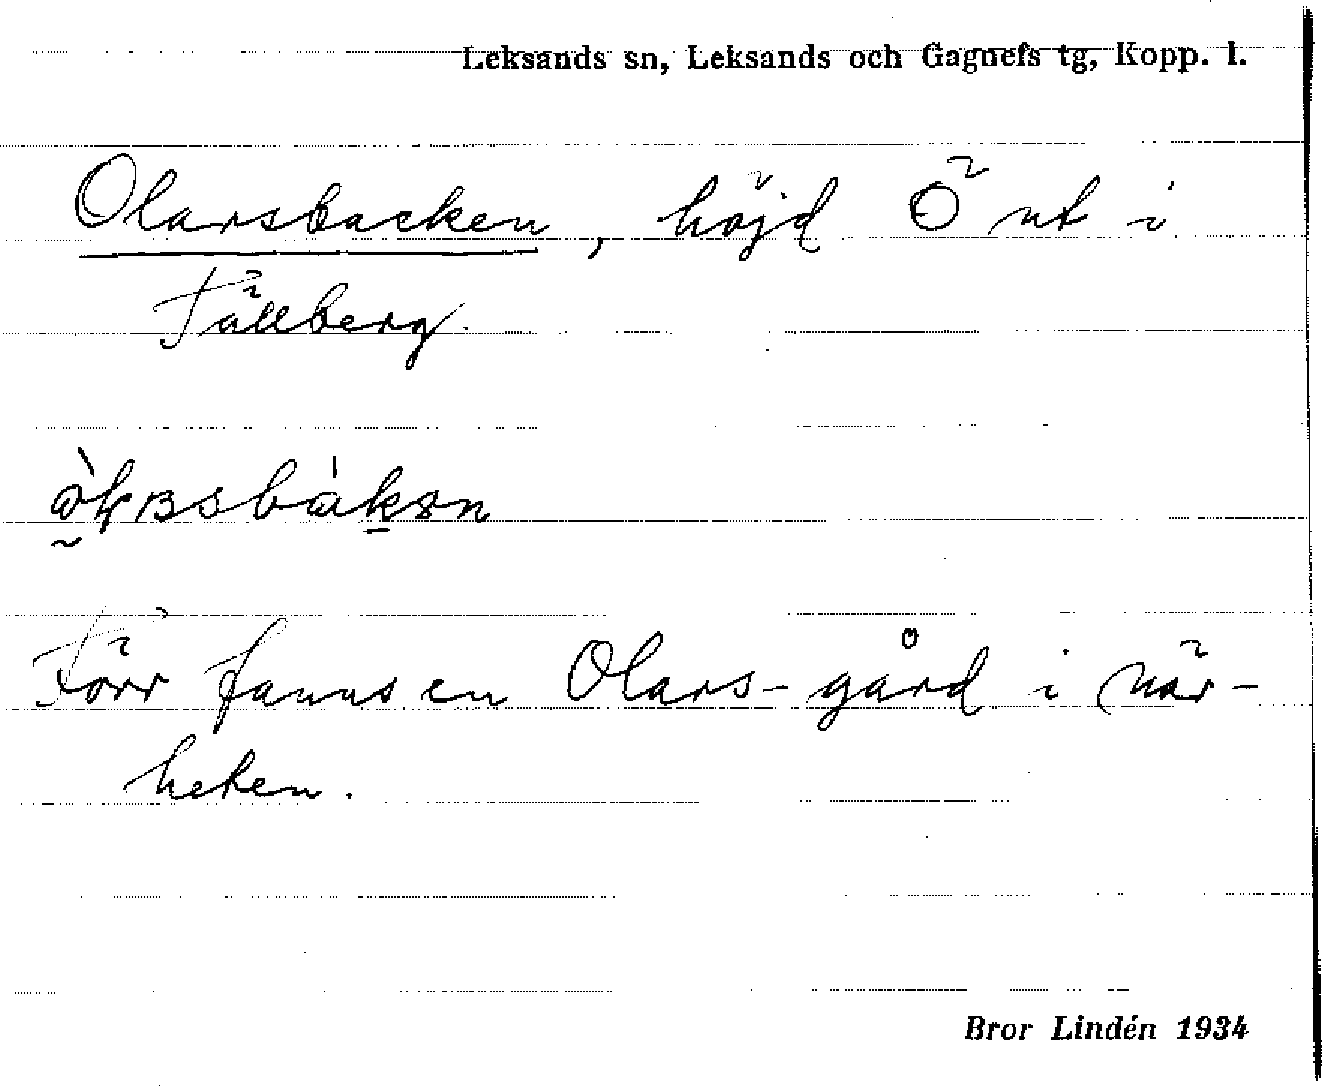 Leksands sn, Leksands och Gagnefs tg, Kopp. l.
Olarsbacken, höjd Ö ut i
Tällberg.
Förr fanns en Olars-gård i när-
heten.
Bror Lindén 1934